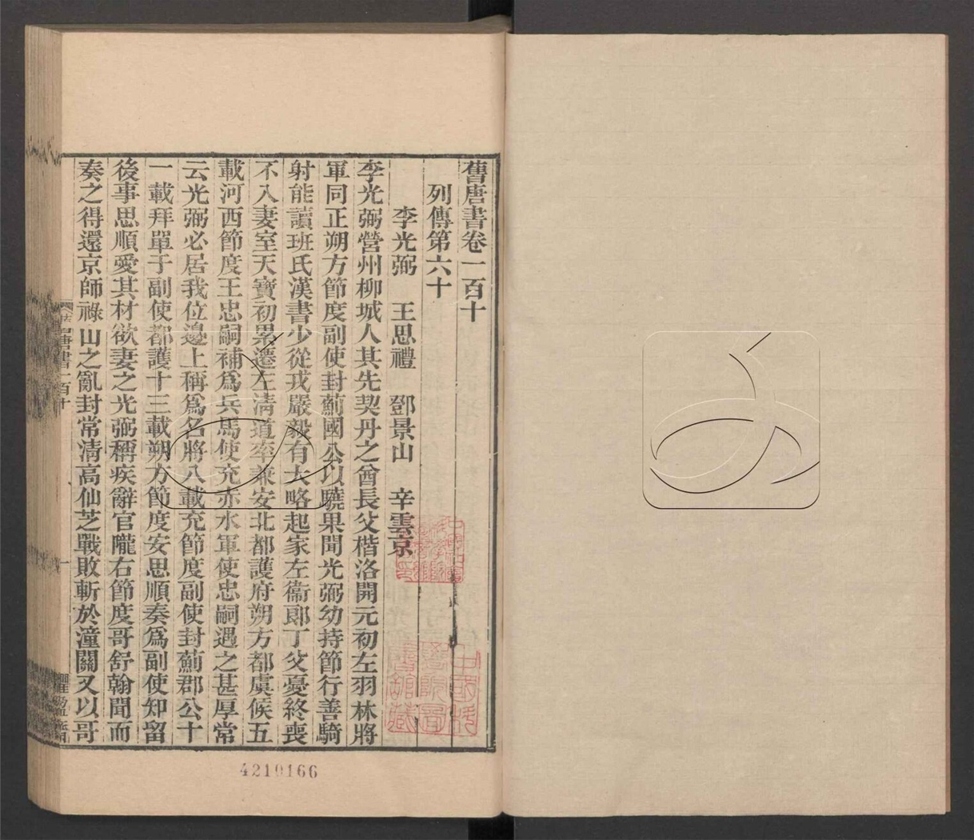 舊唐書卷一百十
列傳第六十
李光弼　王思禮　鄧景山　辛雲京
李光弼營州柳城人其先契丹之酋長父楷洛開元初左羽林將
軍同正朔方節度副使封薊國公以驍果聞光弼幼持節行善騎
射能讀班氏漢書少從戎嚴毅有大略起家左衞郎丁父憂終喪
不入妻室天寶初累遷左清道率兼安北都護府朔方都虞候五
載河西節度王忠嗣補爲兵馬使充赤水軍使忠嗣遇之甚厚常
云光弼必居我位邊上稱爲名將八載充節度副使封薊郡公十
一載拜單于副使都護十三載朔方節度安思順奏爲副使知留
後事思順愛其材欲妻之光弼稱疾辭官隴右節度哥舒翰聞而
奏之得還京師祿山之亂封常清高仙芝戰敗斬於潼關又以哥
唐書一百十
一
4210166